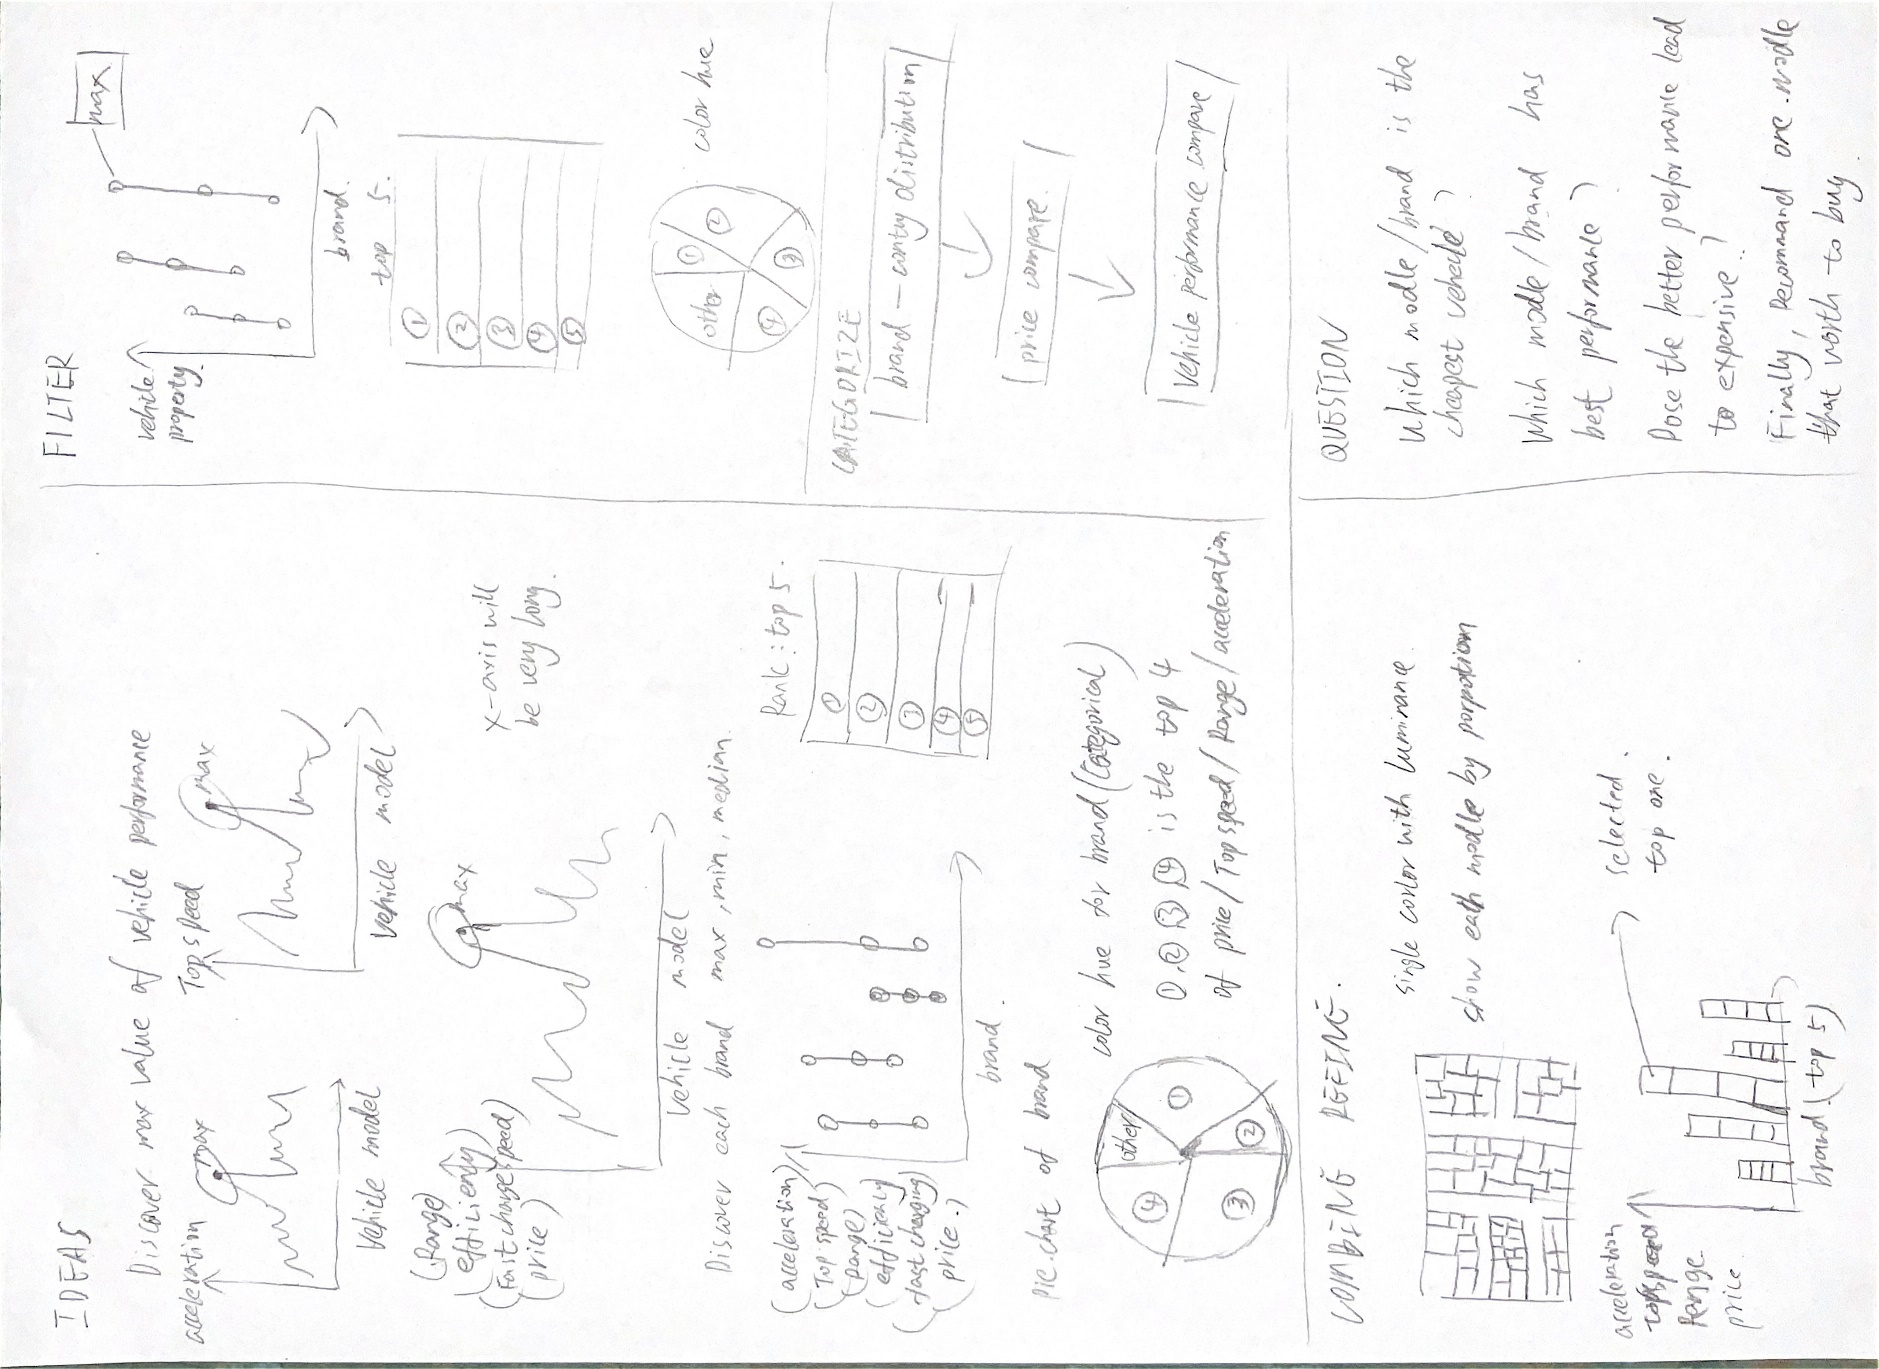 IDEAS
Discover max value of vehicle performance
acceleration
max
vehicle model
Top speed
max
vehicle model
(Range)
(efficiency)
(Fast charge speed)
(price)
max
vehicle model
x-axis will
be very long.
Discover each brand max, min, median.
(acceleration)
(Top speed)
(Range)
(efficiency)
(fast charging)
(price.)
brand.
Rank: top 5.
①
②
③
④
⑤
pie.chart of brand
other
①
②
③
④
color hue for brand (categorical)
①.②③④ is the top 4
of price/Top speed/Range/acceleration
FILTER
vehicle
property.
max
brand.
top 5.
①
②
③
④
⑤
other
①
②
③
④
color hue
CATEGORIZE
brand – contry distribution
price compare.
vehicle performance compare
COMBINE REFINE.
single corlor with luminane
show each modle by porpotion
acceleration
Range
price
brand (top 5)
selected.
top one.
QUESTION
Which modle/brand is the
cheapest vehicle?
Which modle/brand has
best performance?
Dose the better performance lead
to expensive?
Finally, Recommand one modle
that worth to buy